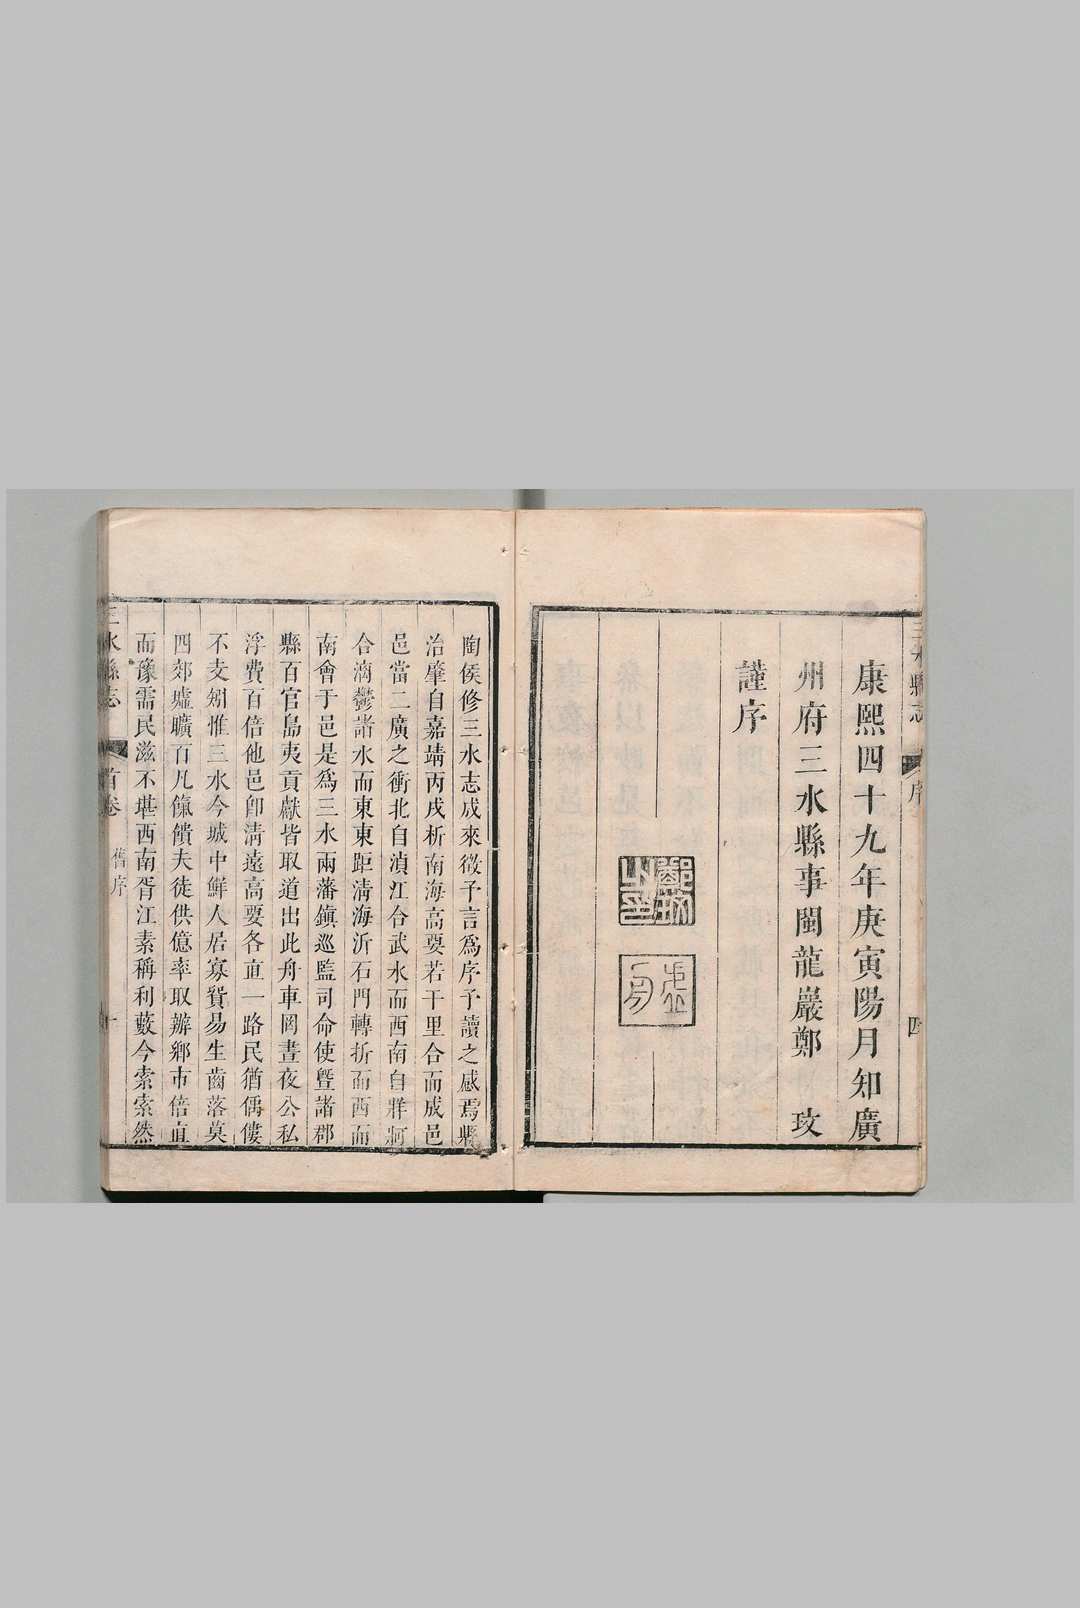 康熙四十九年庚寅陽月知廣
州府三水縣事閩龍巖鄭玫
謹序
鄭玫之印
陶侯修三水志成來徵予言爲序予讀之感焉縣
治肇自嘉靖丙戌析南海高要若干里合而成邑
邑當二廣之衝北自湞江合武水而西南自牂牁
合漓鬱諸水而東東距清海沂石門轉折而西而
南會于邑是爲三水兩藩鎮巡監司命使暨諸郡
縣百官島夷貢獻皆取道出此舟車罔晝夜公私
浮費百倍他邑卽清遠高要各直一路民猶傴僂
不支矧惟三水今城中鮮人居寡貲易生齒落莫
四郊墟曠百凡餼饋夫徒供億率取辦鄉市倍直
而豫需民滋不堪西南胥江素稱利藪今索索然
三水縣志
首卷
舊序